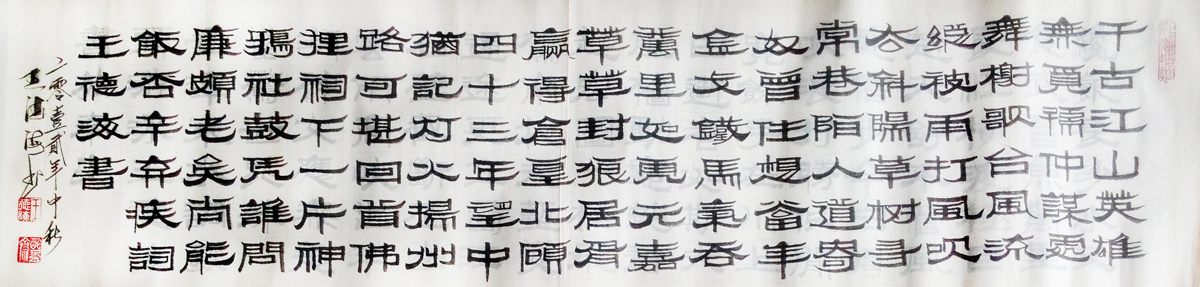 千古江山英雄
無覓孫仲謀處
舞榭歌台風流
總被雨打風吹
去斜陽草树寻
常巷陌人道寄
奴曾住想當年
金戈鐵馬氣吞
萬里如虎元嘉
草草封狼居胥
贏得倉皇北頋
四十三年望中
猶記灯火揚州
路可堪回首佛
狸祠下一片神
鴉社鼓凭誰問
廉頗老矣尚能
飯否辛弃疾詞
王德海書
二零壹貳年中秋